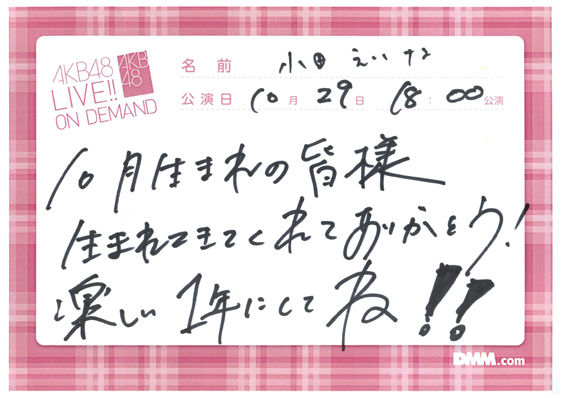 AKB48
LIVE!!
ON DEMAND
AKB
48
名前 小田えりな
公演日 10月29日 18:00公演
10月生まれの皆様
生まれてきてくれてありがとう!
楽しい1年にしてね!!
DMM.com